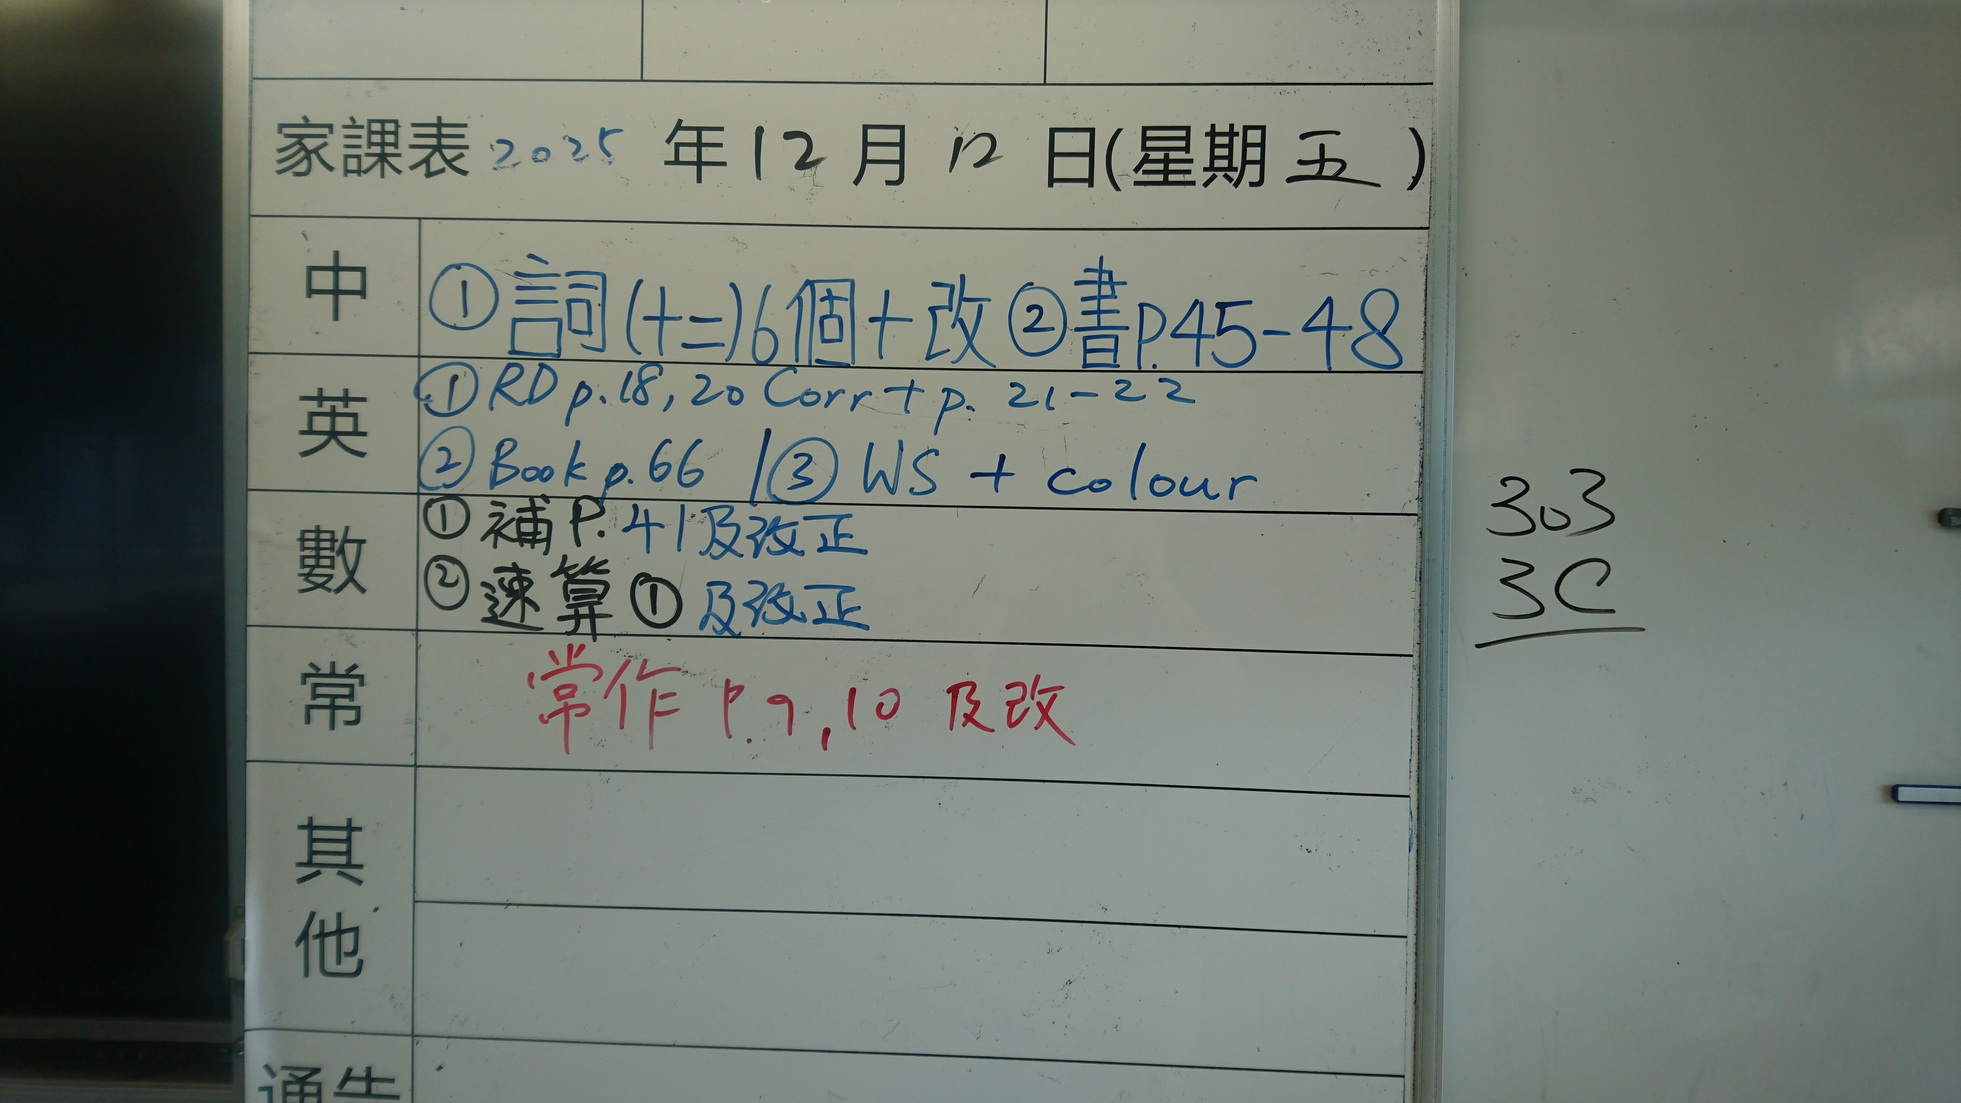 家課表 2025 年 12 月 12 日(星期 五 )
中 ① 詞(十二)6個+改 ② 書P.45-48
英 ① RD p.18, 20 Corr + p. 21-22
② Book p.66 / ③ WS + colour
數 ① 補P.41及改正
② 速算① 及改正
常 常作 P.9,10 及改
其他
通告
303
3C